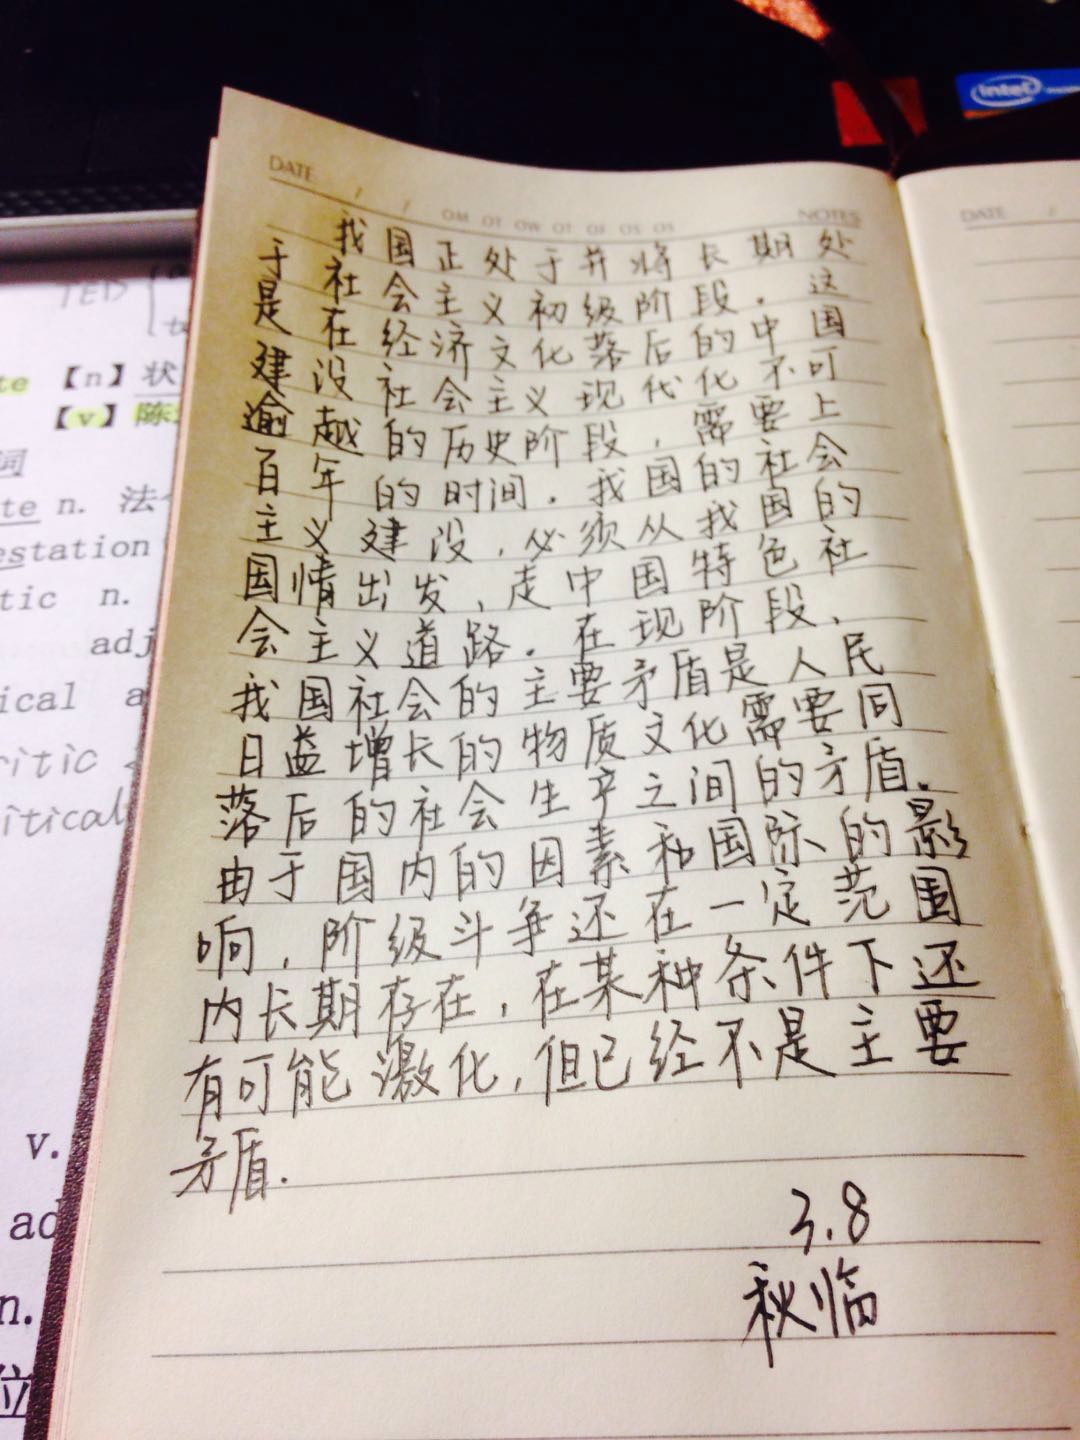 intel
DATE / /
OM OT OW OT OF OS OS
NOTES
我国正处于并将长期处
于社会主义初级阶段.这
是在经济文化落后的中国
建设社会主义现代化不可
逾越的历史阶段,需要上
百年的时间.我国的社会
主义建设,必须从我国的
国情出发,走中国特色社
会主义道路.在现阶段,
我国社会的主要矛盾是人民
日益增长的物质文化需要同
落后的社会生产之间的矛盾.
由于国内的因素和国际的影
响,阶级斗争还在一定范围
内长期存在,在某种条件下还
有可能激化,但已经不是主要
矛盾.
3.8
秋临
DATE /
TED
te 【n】状
【v】陈
词
te n. 法
estation
tic n.
adj
ical a
ritic
itical
v.
ad
n.
位